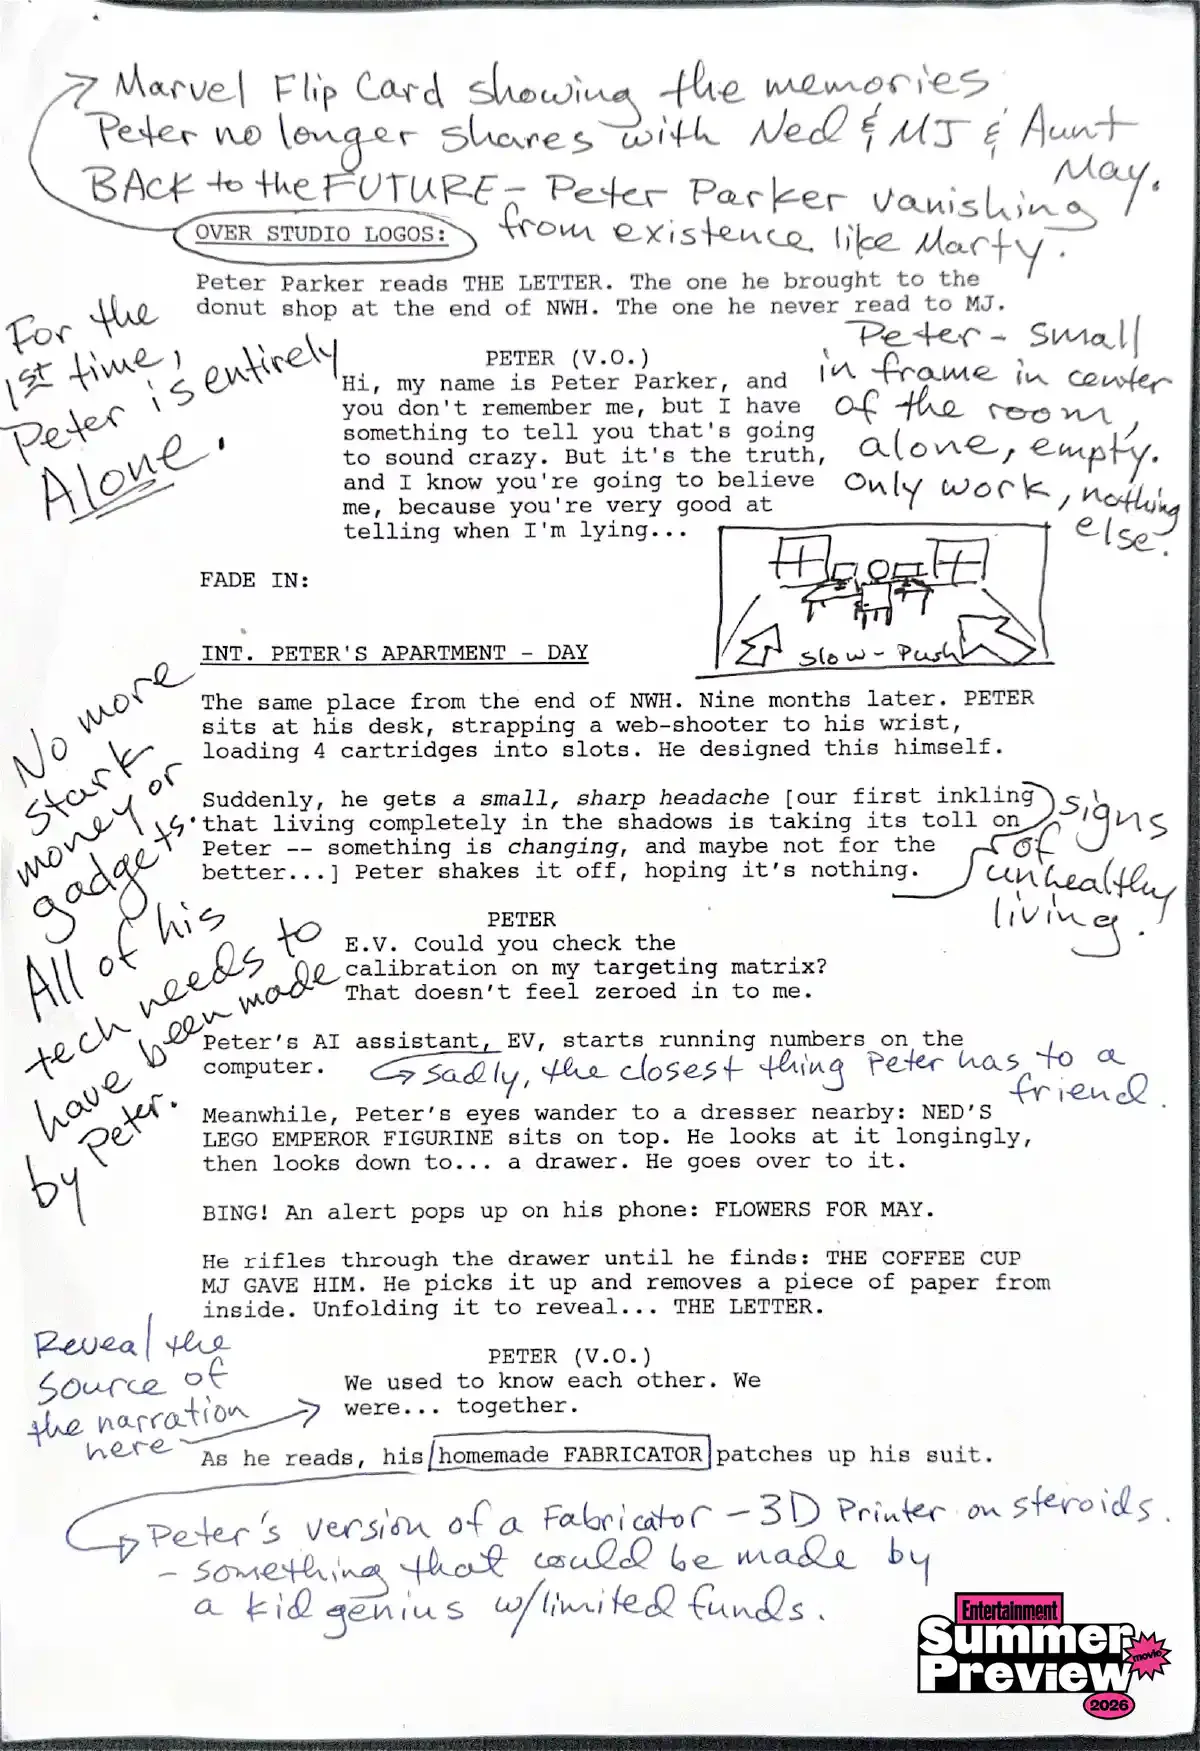 Marvel Flip Card showing the memories
Peter no longer shares with Ned & MJ & Aunt
May.
BACK to the FUTURE - Peter Parker vanishing
from existence like Marty.
OVER STUDIO LOGOS:
Peter Parker reads THE LETTER. The one he brought to the
donut shop at the end of NWH. The one he never read to MJ.
For the
1st time,
Peter is entirely
Alone.
Peter - small
in frame in center
of the room,
alone, empty.
Only work, nothing
else.
PETER (V.O.)
Hi, my name is Peter Parker, and
you don't remember me, but I have
something to tell you that's going
to sound crazy. But it's the truth,
and I know you're going to believe
me, because you're very good at
telling when I'm lying...
FADE IN:
Slow - Push
INT. PETER'S APARTMENT - DAY
The same place from the end of NWH. Nine months later. PETER
sits at his desk, strapping a web-shooter to his wrist,
loading 4 cartridges into slots. He designed this himself.
No more
Stark
money or
gadgets.
All of his
tech needs to
have been made
by Peter.
Suddenly, he gets a small, sharp headache [our first inkling
that living completely in the shadows is taking its toll on
Peter -- something is changing, and maybe not for the
better...] Peter shakes it off, hoping it's nothing.
signs
of
unhealthy
living.
PETER
E.V. Could you check the
calibration on my targeting matrix?
That doesn't feel zeroed in to me.
Peter's AI assistant, EV, starts running numbers on the
computer.
sadly, the closest thing Peter has to a
friend.
Meanwhile, Peter's eyes wander to a dresser nearby: NED'S
LEGO EMPEROR FIGURINE sits on top. He looks at it longingly,
then looks down to... a drawer. He goes over to it.
BING! An alert pops up on his phone: FLOWERS FOR MAY.
He rifles through the drawer until he finds: THE COFFEE CUP
MJ GAVE HIM. He picks it up and removes a piece of paper from
inside. Unfolding it to reveal... THE LETTER.
Reveal the
source of
the narration
here
PETER (V.O.)
We used to know each other. We
were... together.
As he reads, his homemade FABRICATOR patches up his suit.
Peter's version of a Fabricator - 3D Printer on steroids.
- something that could be made by
a kid genius w/limited funds.
Entertainment
Summer
movie
Preview
2026